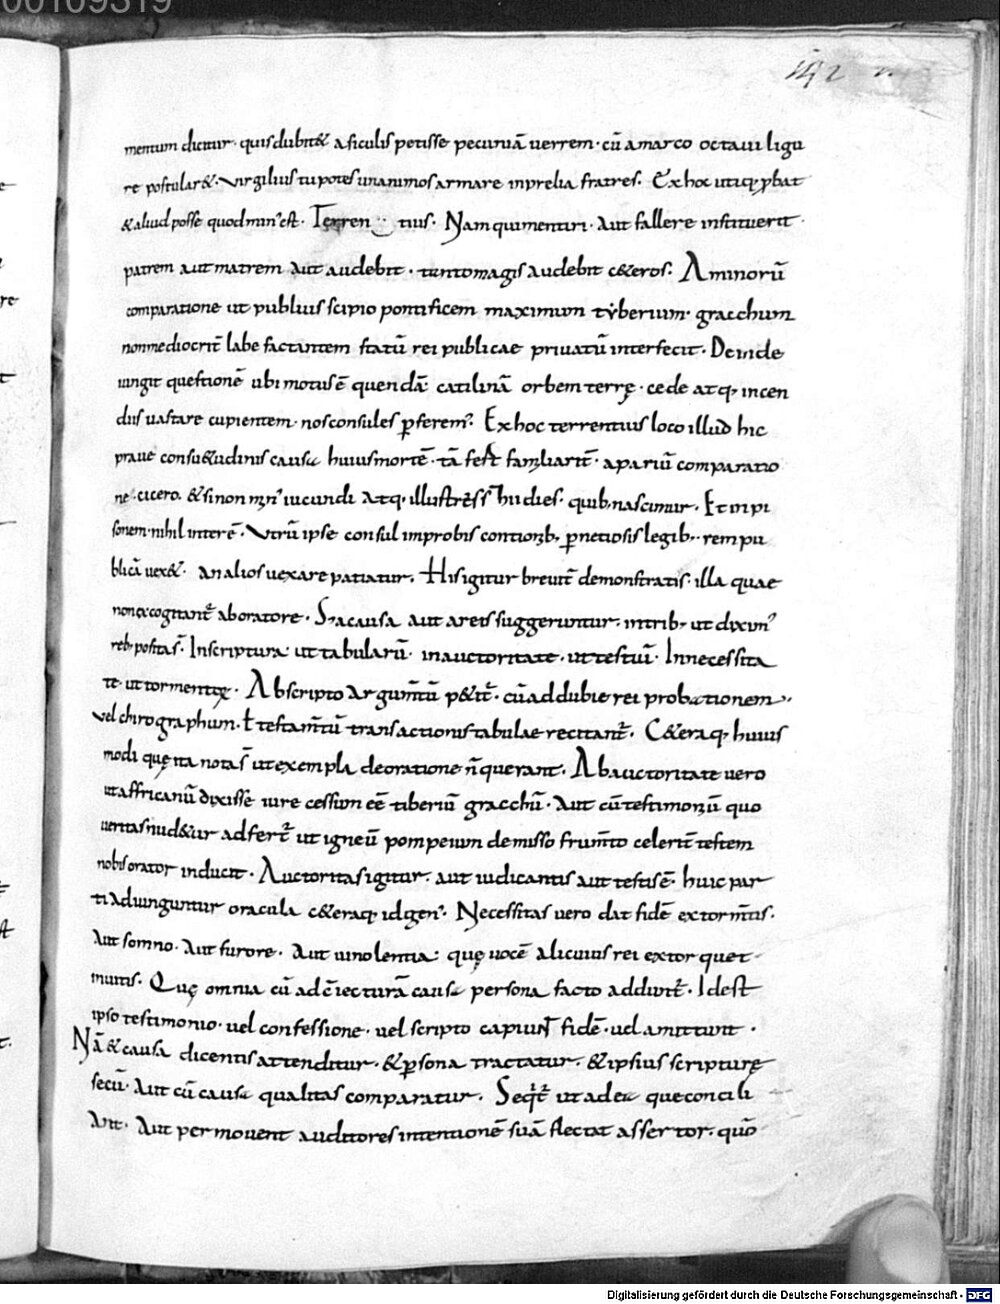 00109319
142
mentum dicitur. quis dubit& a siculis petisse pecuniā uerrem. cū a marco octauii ligu
re postular&. Virgilius tu potes unanimos armare in prelia fratres. Ex hoc utiq; ꝓbat
& aliud posse quod min' est. Terren tius. Nam qui mentiri. aut fallere instituerit
patrem aut matrem aut audebit. tanto magis audebit c&eros. A minorū
comparatione ut publius scipio pontificem maximum tyberium. gracchum
non mediocrit̄ labe factantem statū rei publicae priuatū interfecit. Deinde
iungit questionē ubi motus ē quendā catilinā orbem terrę. cede atq; incen
diis uastare cupientem. nos consules ꝑferem'. Ex hoc terrentius loco illud hic
praue consu&udinis causa huius mortē. tā fest familiarit̄. a pariū comparatio
ne. cicero. & si non min' iucundi atq; illustres s̄ hi dies. quib; nascimur. Et in pi
sonem. nihil interē. Vtrū ipse consul improbis contionib; ꝑnetiosis legib; rem pu
blicā uex&. an alios uexare patiatur. His igitur breuit̄ demonstratis. illa quae
non excogitant̄ ab oratore. S; a causa aut a reis suggeruntur. in trib; ut dixim'
reb; positas̄. In scriptura ut tabularū. in auctoritate. ut testiū. In necessita
te. ut tormentę. A bscripto argum̄tū p&it̄. cū ad dubie rei probationem.
vel chirographum. ł testam̄tū transactionis tabulae recitant̄. C&eraq; huius
modi quę ita notas̄ ut exempla de oratione n̄ querant. Ab auctoritate uero
ut affricanū dixisse iure cessum eē tiberiū gracchū. Aut cū testimoniū quo
ueritas nud&ur adfert̄ ut igneū pompeium demisso frum̄to celerit̄ testem
nobis orator inducit. Auctoritas igitur. aut iudicantis aut testis ē. huic par
ti adiunguntur oracula c&eraq; id gen'. Necessitas uero dat fidē ex torm̄tis.
aut somno. aut furore. aut uinolentia. quę uocē alicuius rei extorquet
inuitis. Quę omnia cū ad c̄iecturā causa persona facto addunt̄. Id est
ipso testimonio. uel confessione. uel scripto capiunt fidē. uel amittunt.
Nā & causa dicentis attenditur. & ꝑsona tractatur. & ipsius scripturę
secū. aut cū causa qualitas comparatur. Seqit̄ ut ad ea que concili
ant. aut permouent auditores intentionē suā flectat assertor. quō
Digitalisierung gefördert durch die Deutsche Forschungsgemeinschaft - DFG